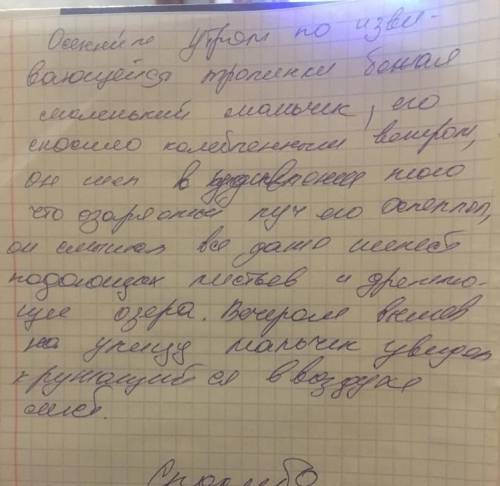 Осенним утром по изви-
вающейся тропинки бежал
маленький мальчик, его
сносило колебленным ветром,
он шел в того
что озаренный луч его ослеплял,
он слышал все даже шелест
подающих листьев и дремлю-
щие озера. Вечером вышев
на улицу мальчик увидел
кружащийся в воздухе
лист.
Спасибо